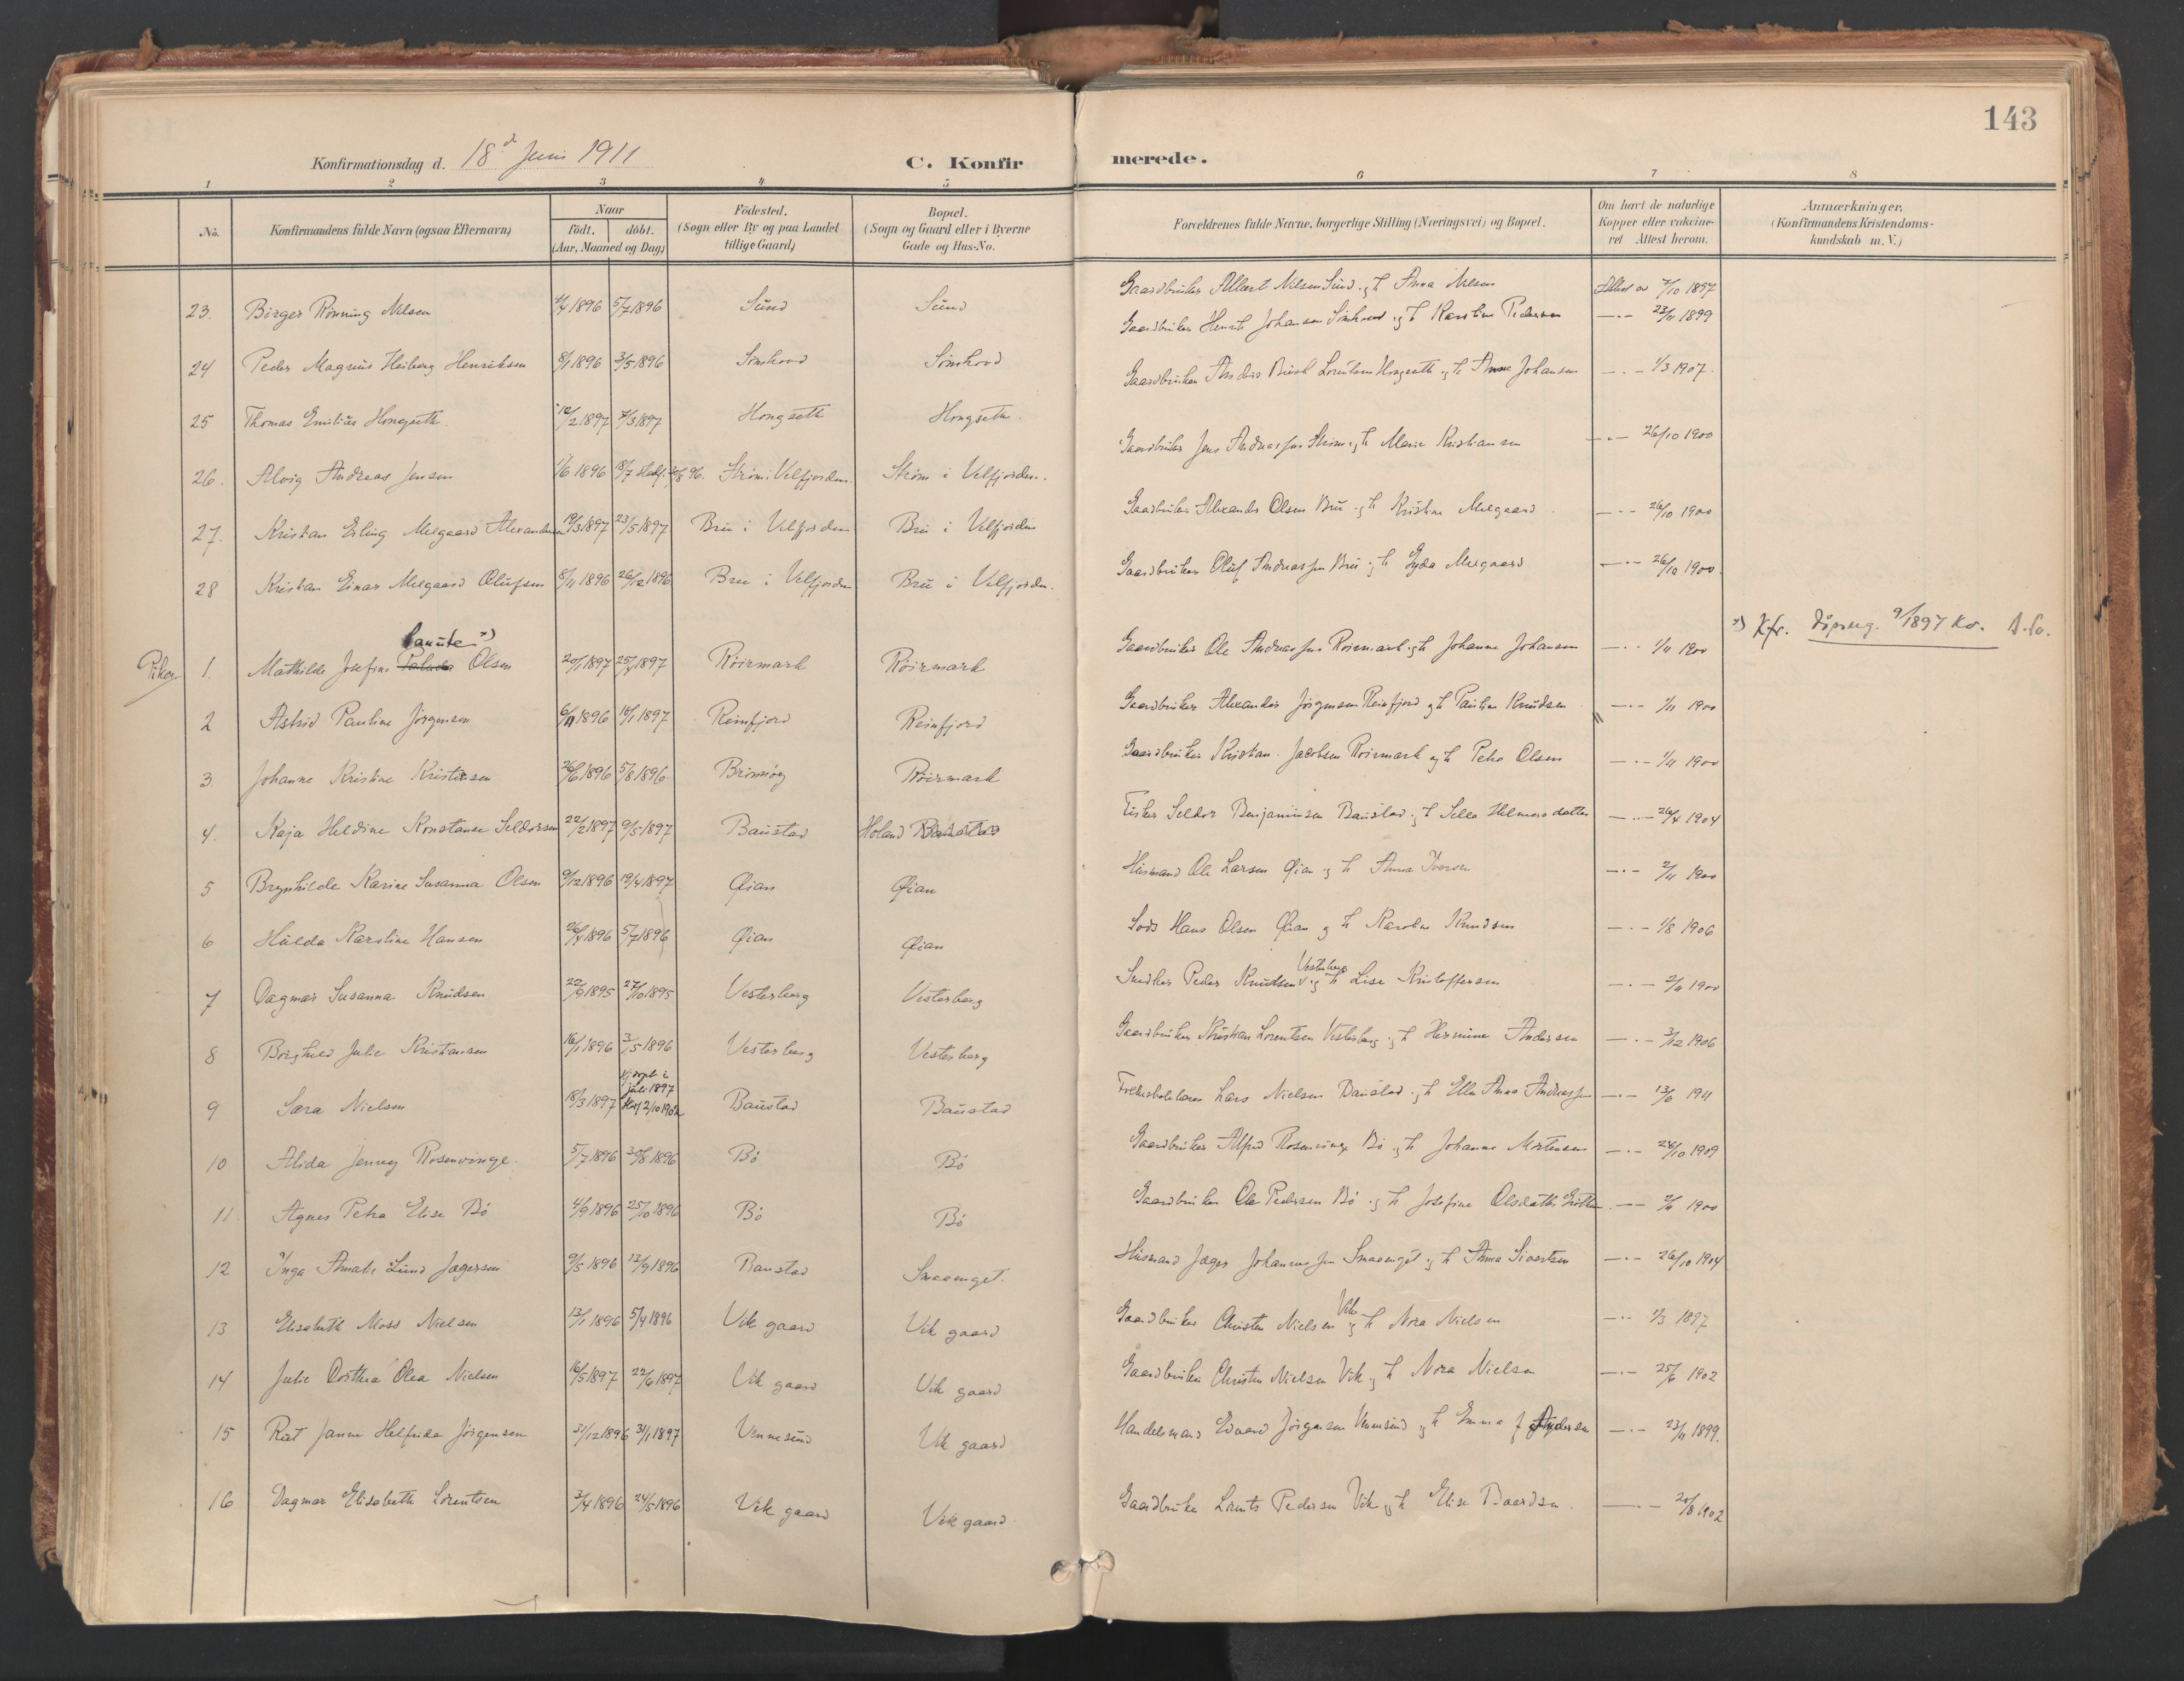 143
Konfirmationsdag d. 18d Juni 1911
C. Konfirmerede.
1 2 3 4 5 6 7 8
No.
Konfirmandens fulde Navn (ogsaa Efternavn)
Naar
født. døbt.
(Aar, Maaned og Dag)
Fødested.
(Sogn eller By og paa Landet
tillige Gaard)
Bopæl.
(Sogn og Gaard eller i Byerne
Gade og Hus-No.
Forældrenes fulde Navne, borgerlige Stilling (Næringsvei) og Bopæl.
Om havt de naturlige
Kopper eller vakcine-
ret Attest herom.
Anmærkninger,
(Konfirmandens Kristendoms-
kundskab m. V.)
23. Birger Rönning Nilsen 1896 5/7 1896 Sund Sund Gaardbruker Albert Nilsen Sund og h Anna Nilsen Attest av 7/10 1897
24 Peder Magnus Heiberg Henriksen 8/1 1896 3/5 1896 Sömhovd Sömhovd Gaardbruker Henrik Johansen Sömhovd og h Karoline Pedersen —"— 23/11 1899
25 Thomas Emilius Hongseth 12/2 1897 7/3 1897 Hongseth Hongseth Gaardbruker Anders Birch Lorentsen Hongseth og h Anne Johansen —"— 1/3 1907.
26. Alvig Andreas Jensen 1/6 1896 18/7 Stadf. 30/8 96. Ström i Velfjorden Ström i Velfjorden. Gaardbruker Jens Andreassen Ström og h Marie Kristiansen —"— 26/10 1900
27. Kristian Erling Melgaard Alexandersen 19/3 1897 23/5 1897 Bru i Velfjorden Bru i Velfjorden Gaardbruker Alexander Olsen Bru og h Kristine Melgaard —"— 26/10 1900
28 Kristian Einar Melgaard Olufsen 8/11 1896 26/12 1896 Bru i Velfjorden Bru i Velfjorden. Gaardbruker Oluf Andreassen Bru og h Gyda Melgaard —"— 26/10 1900.
Piker
Canute *)
1. Mathilde Josefine Olsen 1897 25/4 1897 Röirmark Röirmark Gaardbruker Ole Andreassen Röirmark og h Johanne Johansen —"— 1/11 1900 *) Kfr. döpreg. 9/1897 Kv.
2 Astrid Pauline Jörgensen 6/11 1896 10/1 1897 Reinfjord Reinfjord Gaardbruker Alexander Jörgensen Reinfjord og h Pauline Knudsen —"— 1/11 1900
3. Johanne Kristine Kristiansen 26/6 1896 5/8 1896 Brimsög Röirmark Gaardbruker Kristian Jacobsen Röirmark og h Petra Olsen —"— 1/11 1900
4. Kaja Heldine Konstanse Seldorsen 22/2 1897 9/5 1897 Baustad Holand Baustad Fisker Seldor Benjaminsen Baustad og h Sella Helmersdatter —"— 26/4 1904
5 Brynhilde Karine Susanna Olsen 9/12 1896 19/4 1897 Øian Øian Husmand Ole Larsen Øian og h Anna Iversen —"— 2/11 1900
6 Hulda Karoline Hansen 26/4 1896 5/7 1896 Øian Øian Lods Hans Olsen Øian og h Karoline Knudsen —"— 1/8 1906
7 Dagmar Susanna Knudsen 22/9 1895 27/10 1895 Vesterberg Vesterberg Snedker Peder Knutsen Vesterberg og h Lise Kristoffersen —"— 2/11 1900
8 Borghild Julie Kristiansen 16/1 1896 3/5 1896 Vesterberg Vesterberg Gaardbruker Kristian Lorentsen Vesterberg og h Hermine Andersen —"— 3/12 1906
9 Sara Nielsen 18/3 1897 Hj.döpt i juli 1897 Stadf 2/10 1902 Baustad Baustad Folkeskolelærer Lars Nielsen Baustad og h Ella Anna Andreassen —"— 13/6 1911
10 Alida Jenny Rosenvinge. 5/7 1896 30/8 1896 Bö Bö Gaardbruker Alfred Rosenvinge Bö og h Johanne Mortensen —"— 28/10 1909
11. Agnes Petra Elise Bö 4/9 1896 25/10 1896 Bö Bö Gaardbruker Ole Pedersen Bö og h Josefine Olsdatter —"— 2/11 1900
12 Inga Amalie Lund Jægersen 9/5 1896 13/9 1896 Baustad Smaaenget. Husmand Jæger Johannessen Smaaenget og h Anna Sivertsen —"— 26/10 1904
13 Elisabeth Moss Nielsen 13/1 1896 5/4 1896 Vik gaard Vik gaard Gaardbruker Christen Nielsen Vik og h Nora Nielsen —"— 1/3 1897
14 Julie Dorthea Olea Nielsen 16/5 1897 22/6 1897 Vik gaard Vik gaard Gaardbruker Christen Nielsen Vik og h Nora Nielsen —"— 25/6 1902
15 Rut Janna Helfrida Jörgensen 31/12 1896 31/1 1897 Vennesund Vik gaard Handelsmand Edvard Jörgensen Vennesund og h Emma f Andersen —"— 23/11 1899.
16 Dagmar Elisabeth Lorentsen 3/4 1896 24/5 1896 Vik gaard Vik gaard. Gaardbruker Lorents Pedersen Vik og h Elise Baardsen. —"— 20/8 1902